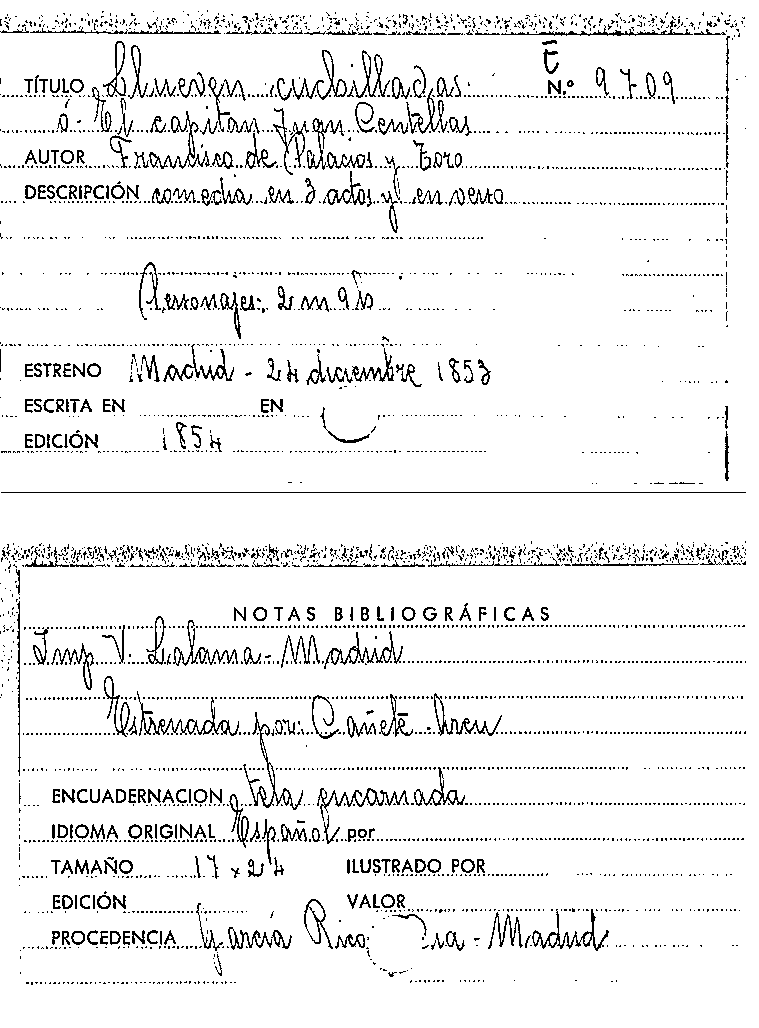 E
TÍTULO Llueven cuchilladas N.º 9709
ó El capitan Juan Centellas
AUTOR Francisco de Palacios y Toro
DESCRIPCIÓN comedia en 3 actos y en verso
Personajes: 2 m 9 h
ESTRENO Madrid - 24 diciembre 1853
ESCRITA EN EN
EDICIÓN 1854
NOTAS BIBLIOGRÁFICAS
Imp V. Lalama - Madrid
Estrenada por: Cañete
ENCUADERNACION tela encarnada
IDIOMA ORIGINAL Español por
TAMAÑO 17 x 24 ILUSTRADO POR
EDICIÓN VALOR
PROCEDENCIA García Rico - Madrid